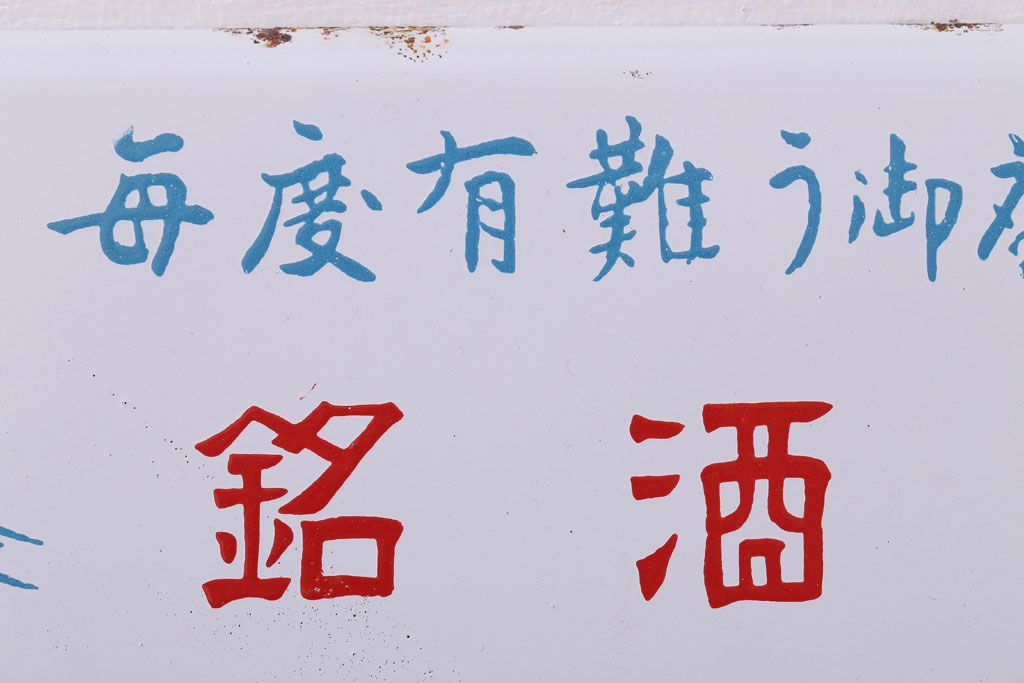 毎度有難う御
銘酒